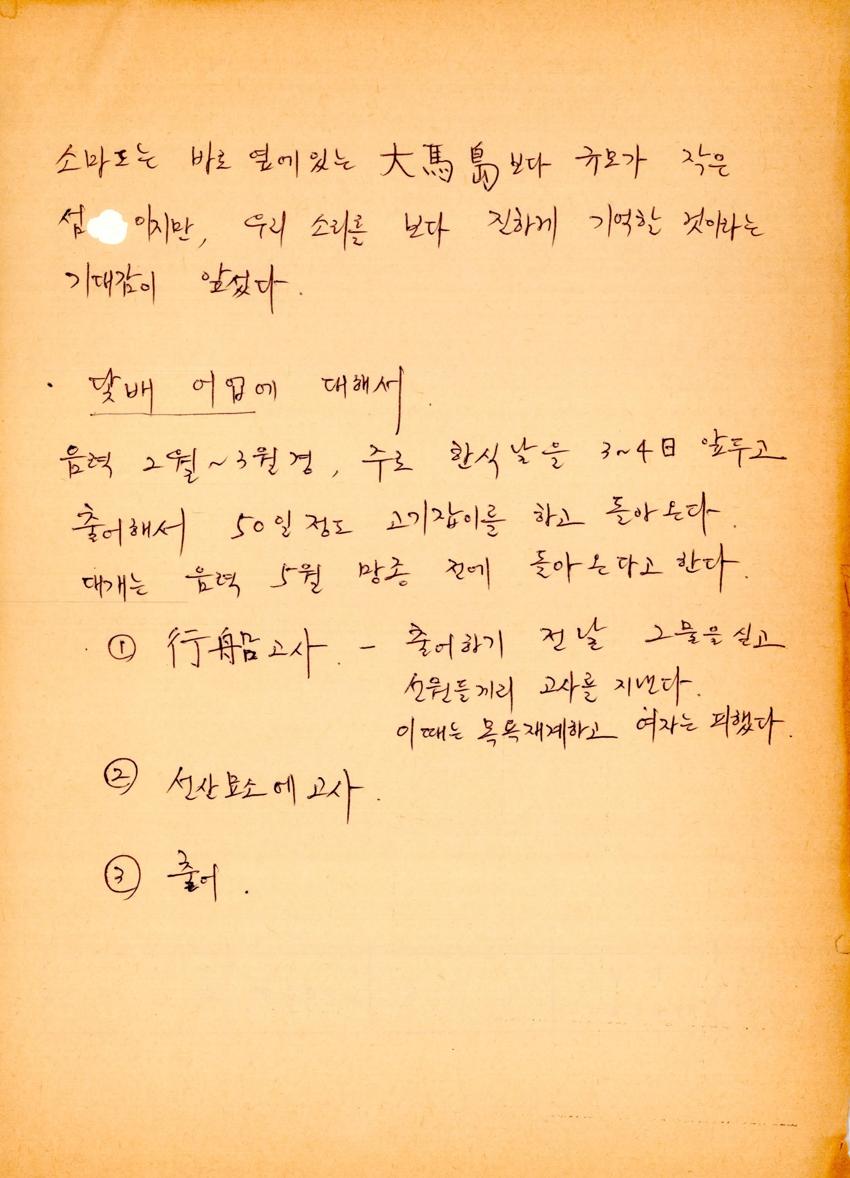 소마도는 바로 옆에 있는 大馬島보다 규모가 작은
섬 이지만, 우리 소리를 보다 진하게 기억할 것이라는
기대감이 앞섰다.
· 닻배 어업에 대해서.
음력 2월~3월경, 주로 한식날을 3~4日 앞두고
출어해서 50일 정도 고기잡이를 하고 돌아온다.
대개는 음력 5월 망종 전에 돌아온다고 한다.
① 行船고사. - 출어하기 전날 그물을 싣고
선원들끼리 고사를 지낸다.
이때는 목욕재계하고 여자는 피했다.
② 선산묘소에 고사.
③ 출어.